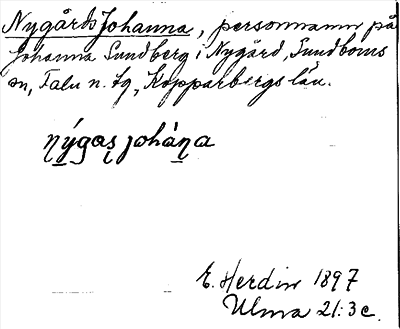 NygårdsJohanna, personnamn på
Johanna Sundberg i Nygård, Sundborns
sn, Falu n. tg, Kopparbergs län.
nýgas johàna
E. Herdin 1897
Ulma 21:3c.